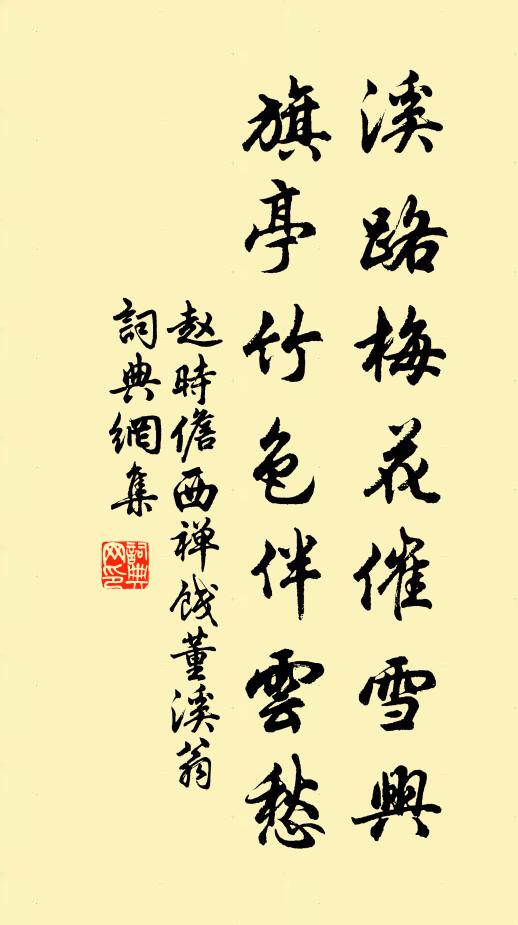 溪路梅花催雪興
旗亭竹色伴雲愁
赵時儋西禅餞董溪翁
詞典網集
詞典网印